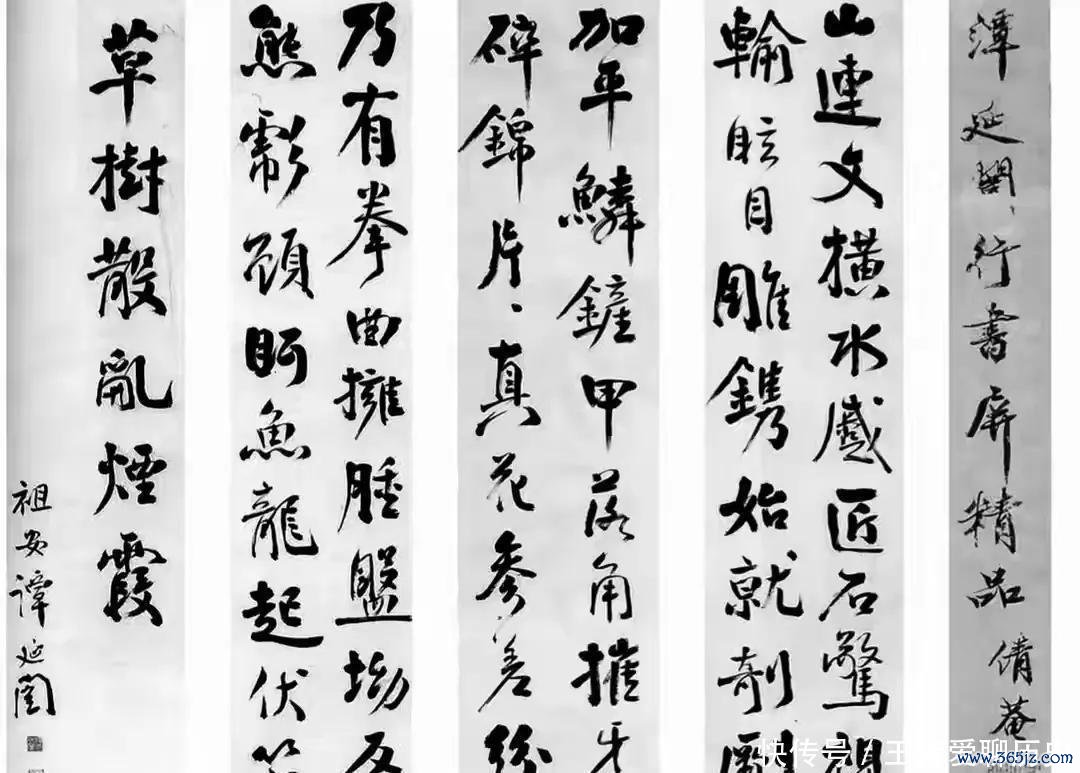 譚延闓、行書屏精品 倩菴
山連文橫水蹙匠石驚視
輸眩目雕鐫始就剞劂
加平鱗鏟甲落角摧牙
碎錦片、真花參差紛
乃有拳曲擁腫盤坳反
熊彪顧盼魚龍起伏
草樹散亂煙霞
祖安譚延闓
快传号/王
爱聊历史
www.365jz.com